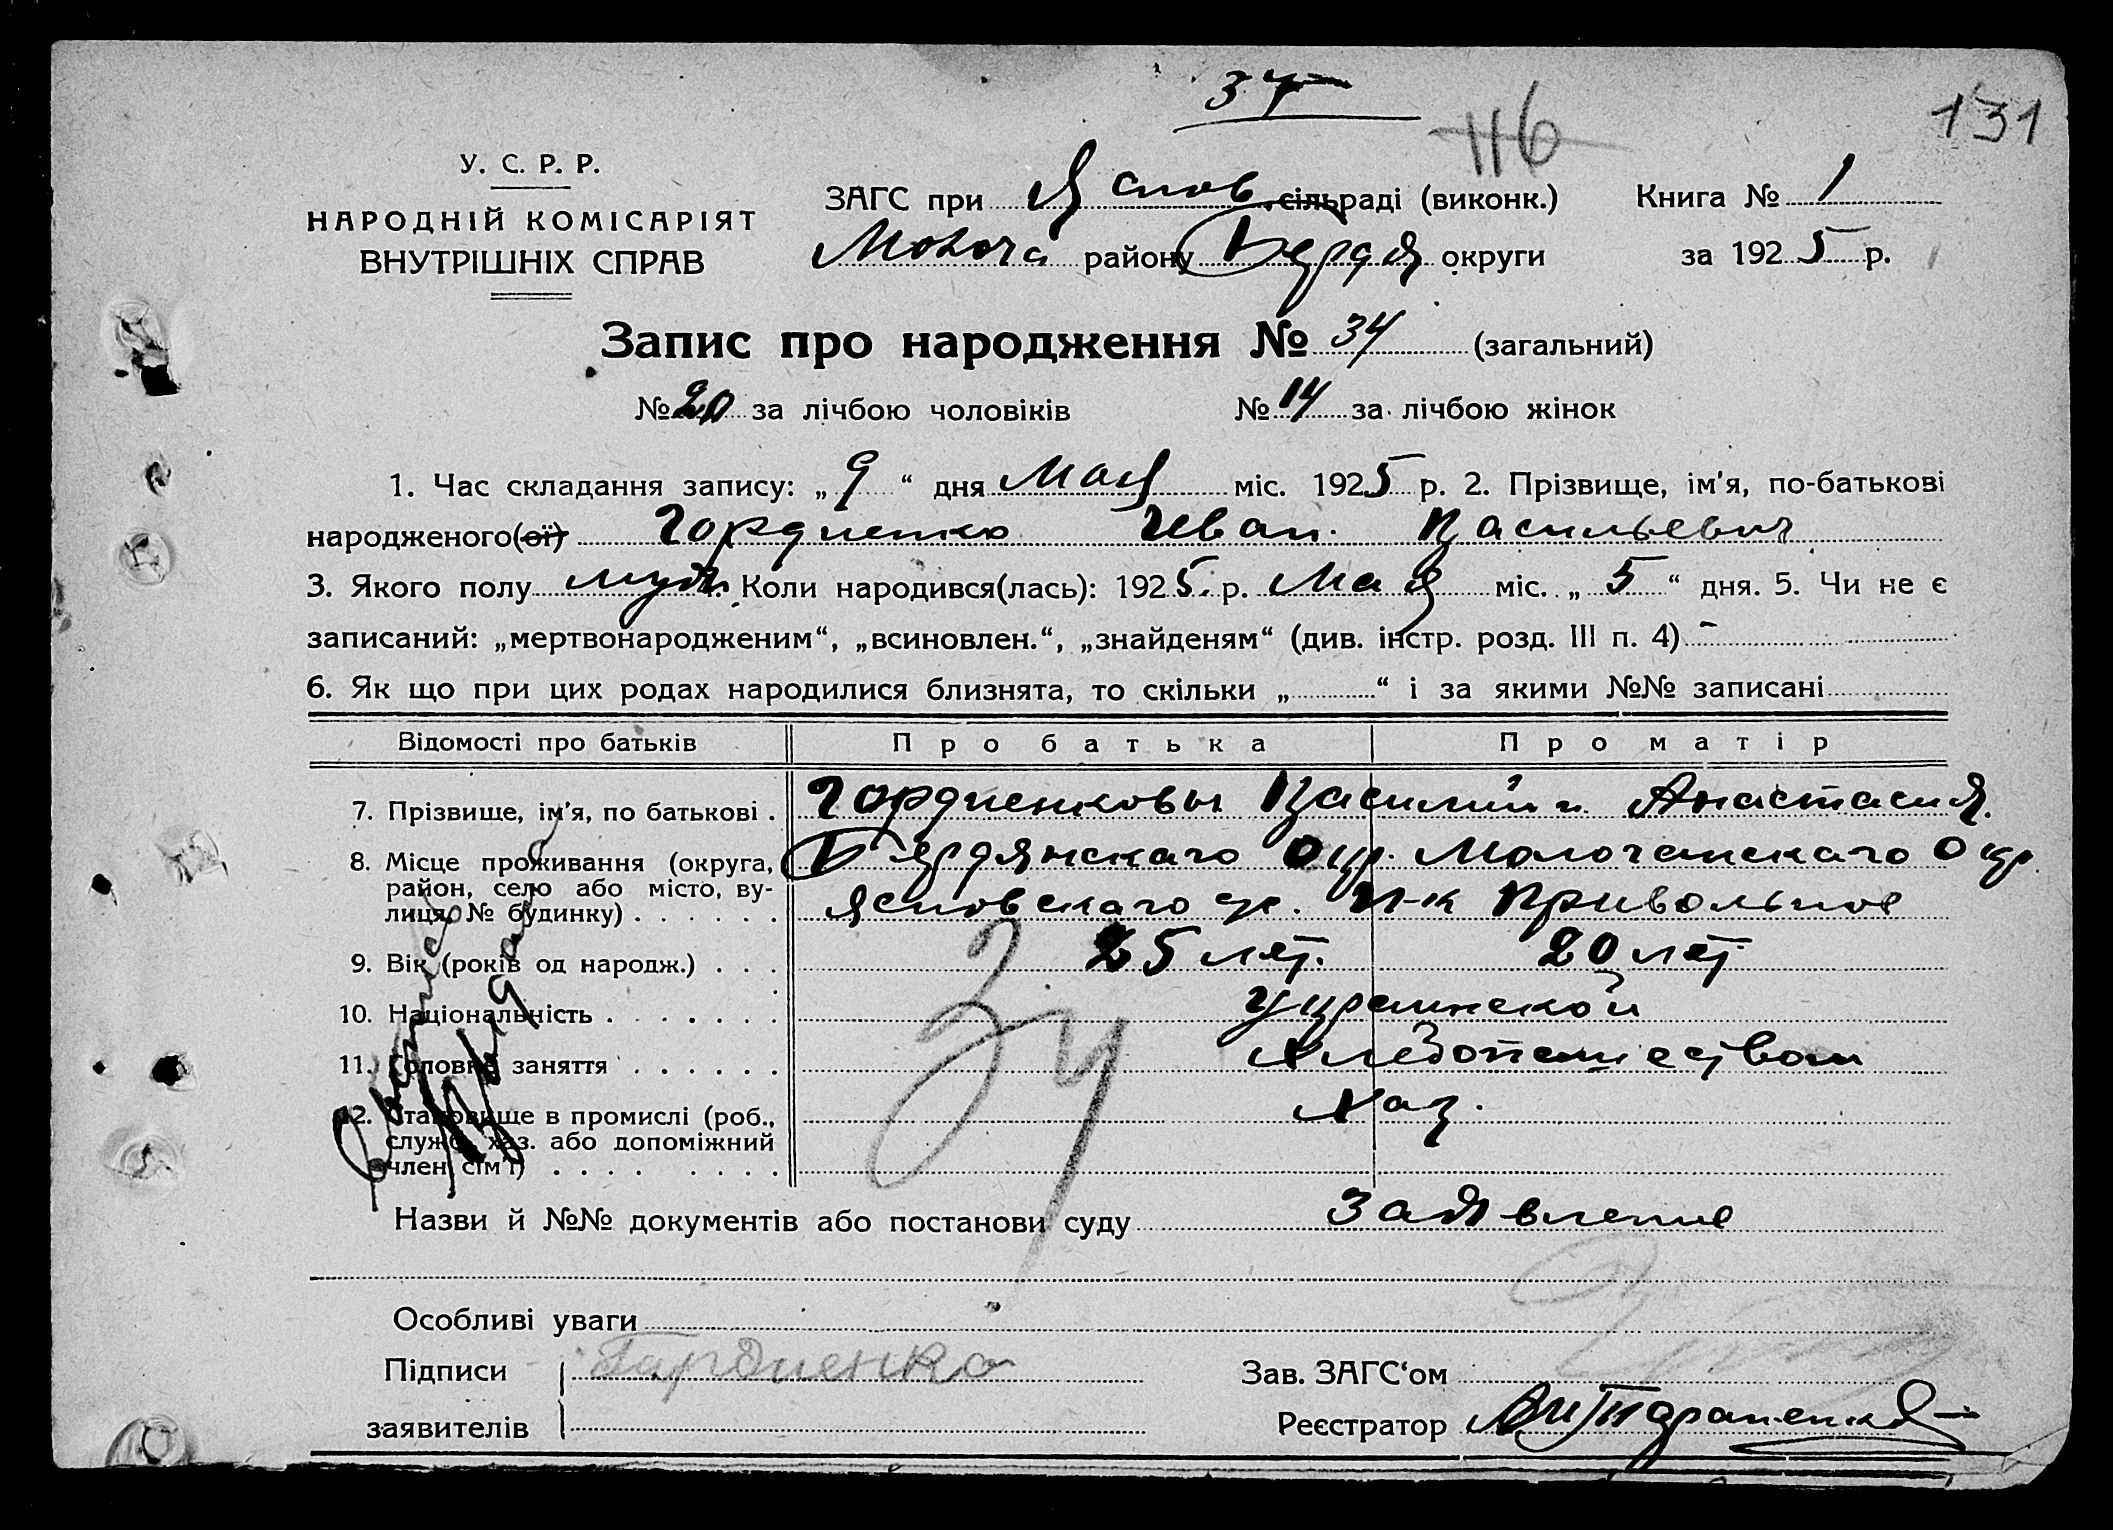 34
116
131
У. С. Р. Р.
НАРОДНІЙ КОМІСАРІЯТ
ВНУТРІШНІХ СПРАВ
ЗАГС при Яснов. сільраді (виконк.) Книга № 1
Молоча району Бердя округи за 1925 р.
Запис про народження № 34 (загальний)
№ 20 за лічбою чоловіків № 14 за лічбою жінок
1. Час складання запису: „9“ дня Мая міс. 1925 р. 2. Прізвище, ім'я, по-батькові
народженого(ої) Гордиенко Иван Васильевич
3. Якого полу муж. Коли народився(лась): 1925 р. Мая міс. „5“ дня. 5. Чи не є
записаний: „мертвонародженим“, „всиновлен.“, „знайденям“ (див. інстр. розд. III п. 4) -
6. Як що при цих родах народилися близнята, то скільки „ “ і за якими №№ записані
Відомості про батьків Про батька Про матір
7. Прізвище, ім'я, по батькові . Гордиенковы Василий и Анастасия.
8. Місце проживання (округа, Бердянскаго Окр. Молочанскаго
район, село або місто, ву-
лиця, № будинку) . . . . . . Ясновскаго п-к Привольное
9. Вік (років од народж.) . . . 25 лет. 20 лет
10. Національність . . . . . . . Украинской
11. Головне заняття . . . . . . Хлебопашеством
12. Становище в промислі (роб., Хаз.
служб. хаз. або допоміжний
член сім'ї) . . . . . . . . .
34
Назви й №№ документів або постанови суду Заявление
Особливі уваги
Підписи Гардиенко Зав. ЗАГС‘ом
заявителів Реєстратор